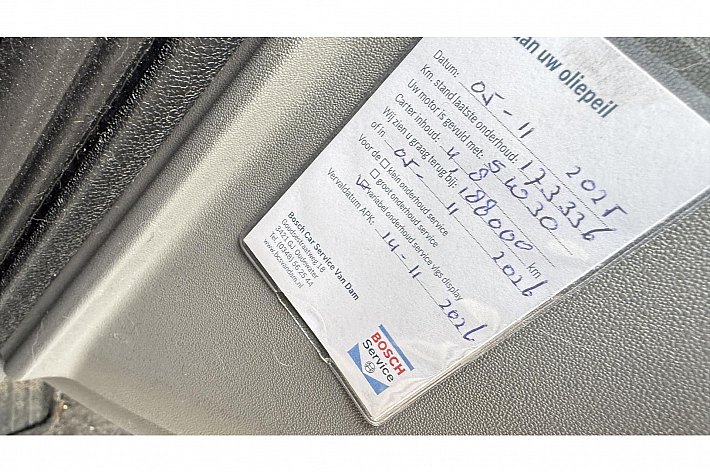 an uw oliepeil
Datum: 05-11 2025
Km. stand laatste onderhoud: 173336
Uw motor is gevuld met: 5W30
Carter inhoud: 4,8
Wij zien u graag terug bij: 188000 km
of in 05-11 2026
Voor de klein onderhoud service
groot onderhoud service
variabel onderhoud service vlgs display
Vervaldatum APK: 14-11 2026
Bosch Car Service Van Dam
Goudsestraatweg 18
3421 GJ Oudewater
Tel. (0348) 56 25 44
www.bcsvandam.nl
BOSCH
Service